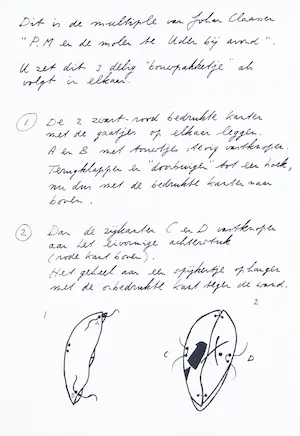 Dit is de multiple van Johan Claassen
"P.M en de molen te Uden bij avond".
U zet dit 3 delig "bouwpakketje" als
volgt in elkaar.
1 De 2 zwart-rood bedrukte kanten
met de gaatjes op elkaar leggen.
A en B met touwtjes stevig vastknopen.
Terugklappen en "doorbuigen" tot een hoek,
nu dus met de bedrukte kanten naar
boven.
2 Dan de zijkanten C en D vastknopen
aan het eivormige achterstuk
(rode kant boven).
Het geheel aan een spijkertje ophangen
met de onbedrukte kant tegen de wand.
1 2
C D